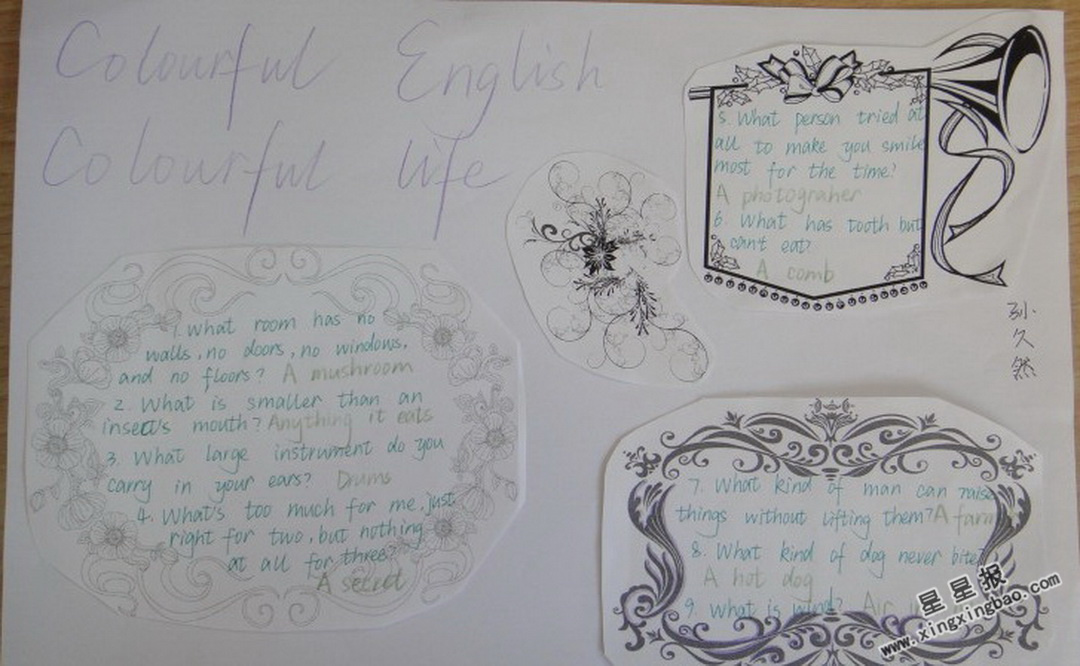 Colourful English
Colourful life
1. What room has no
walls, no doors, no windows,
and no floors? A mushroom
2. What is smaller than an
insect's mouth? Anything it eats
3. What large instrument do you
carry in your ears? Drums
4. What's too much for me, just
right for two, but nothing
at all for three?
A secret
5. What person tried at
all to make you smile
most for the time?
A photograher
6. What has tooth but
can't eat?
A comb
孙
久
然
7. What kind of man can raise
things without lifting them? A
8. What kind of dog never bite
A hot dog
9. What is wind? Air
星星报
www.xingxingbao.com